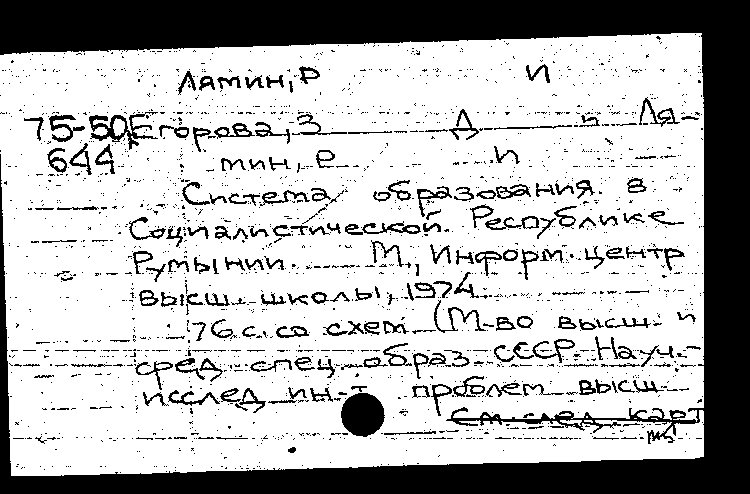 Лямин, Р И
75-50 Егорова, З Д и Ля-
644 мин, Р И
Система образования в
Социалистической Республике
Румынии. М., Информ. центр
высш. школы, 1974
76 с. со схем (М-во высш. и
сред. спец. образ. СССР. Науч.-
исслед ин-т проблем высш.
См. след. карт